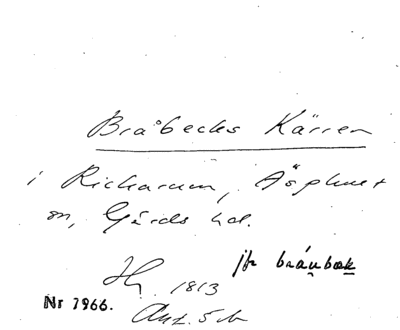 Bråbecks Kärren
i Rickarum, Äsphult
sn, Gärds hd.
jfr bråubæk
Hg 1813
Nr 7966.
Akt. 5 b